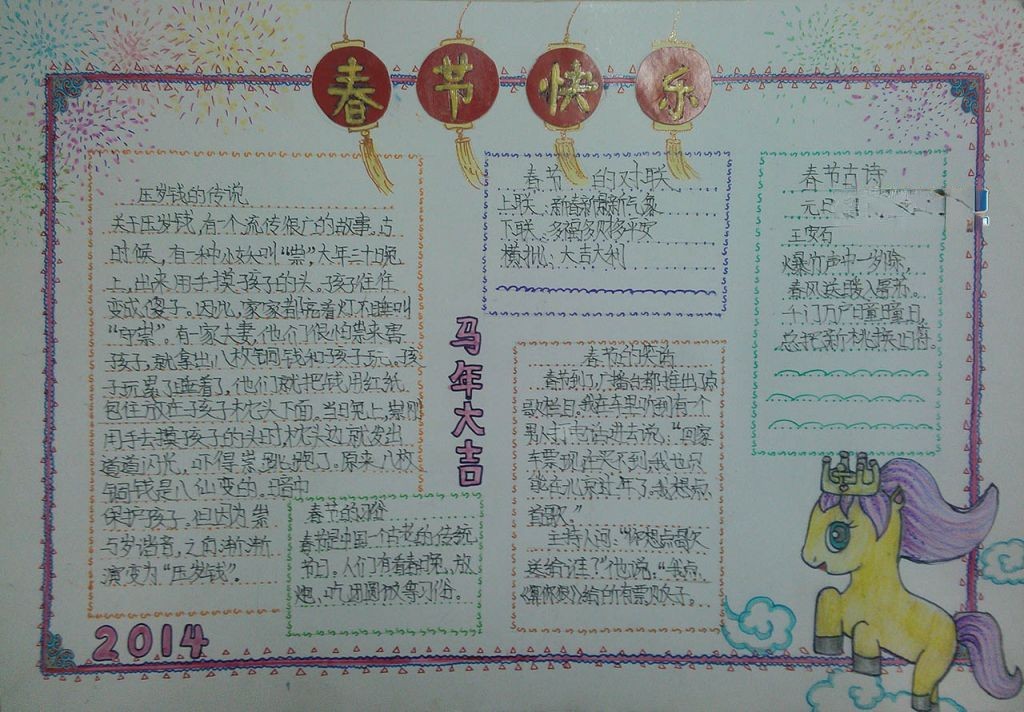 春节快乐
压岁钱的传说
关于压岁钱,有一个流传很广的故事。古
时候,有一种小妖叫“祟”,大年三十晚
上,出来用手摸孩子的头。孩子往往
变成傻子。因此,家家都亮着灯不睡叫
“守祟”。有一家夫妻,他们很怕祟来害
孩子,就拿出八枚铜钱和孩子玩。孩
子玩累了睡着了,他们就把钱用红纸
包住放在孩子枕头下面。当日晚上,祟刚
用手去摸孩子的头时枕头边就发出
道道闪光,吓得祟跑了。原来八枚
铜钱是八仙变的。暗中
保护孩子,但因为祟
与岁谐音,之角渐渐
演变为“压岁钱”。
2014
春节的习俗
春节是中国一个古老的传统
节日。人们有看春晚,放
炮,吃团圆饭等习俗。
马年大吉
春节的对联
上联:新春新景新气象
下联:多福多财多平安
横批:大吉大利
春节的笑话
春节到了,广播台都推出了点
歌栏目。我在车里听到有一个
男人打电话进去说:“回家
车票现在买不到,我也只
能在北京过年了。我想点
首歌。”
主持人问:“你想点歌
送给谁?”他说:“我点
《算你狠》给所有票贩子。
春节古诗
元旦
王安石
爆竹声中一岁除,
春风送暖入屠苏。
千门万户曈曈日,
总把新桃换旧符。